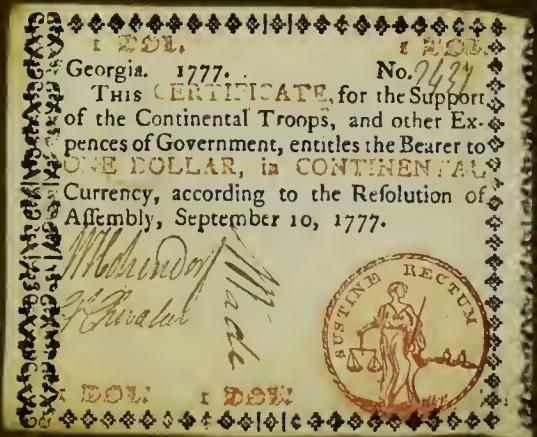 1 DOL. 1 DOL.
Georgia. 1777. No.
THIS CERTIFICATE, for the Support
of the Continental Troops, and other Ex-
pences of Government, entitles the Bearer to
ONE DOLLAR, in CONTINENTAL
Currency, according to the Reſolution of
Aſſembly, September 10, 1777.
Wade
SUSTINE RECTUM
1 DOL. 1 DOL.